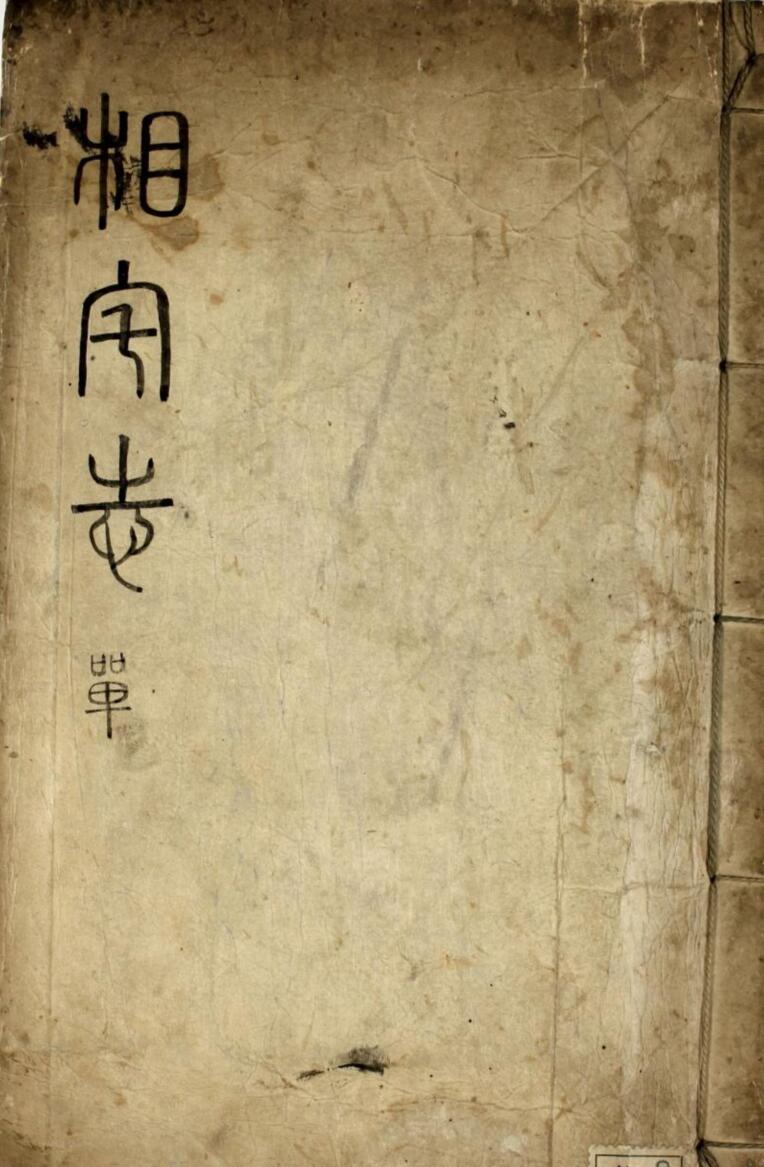 相宅志 單